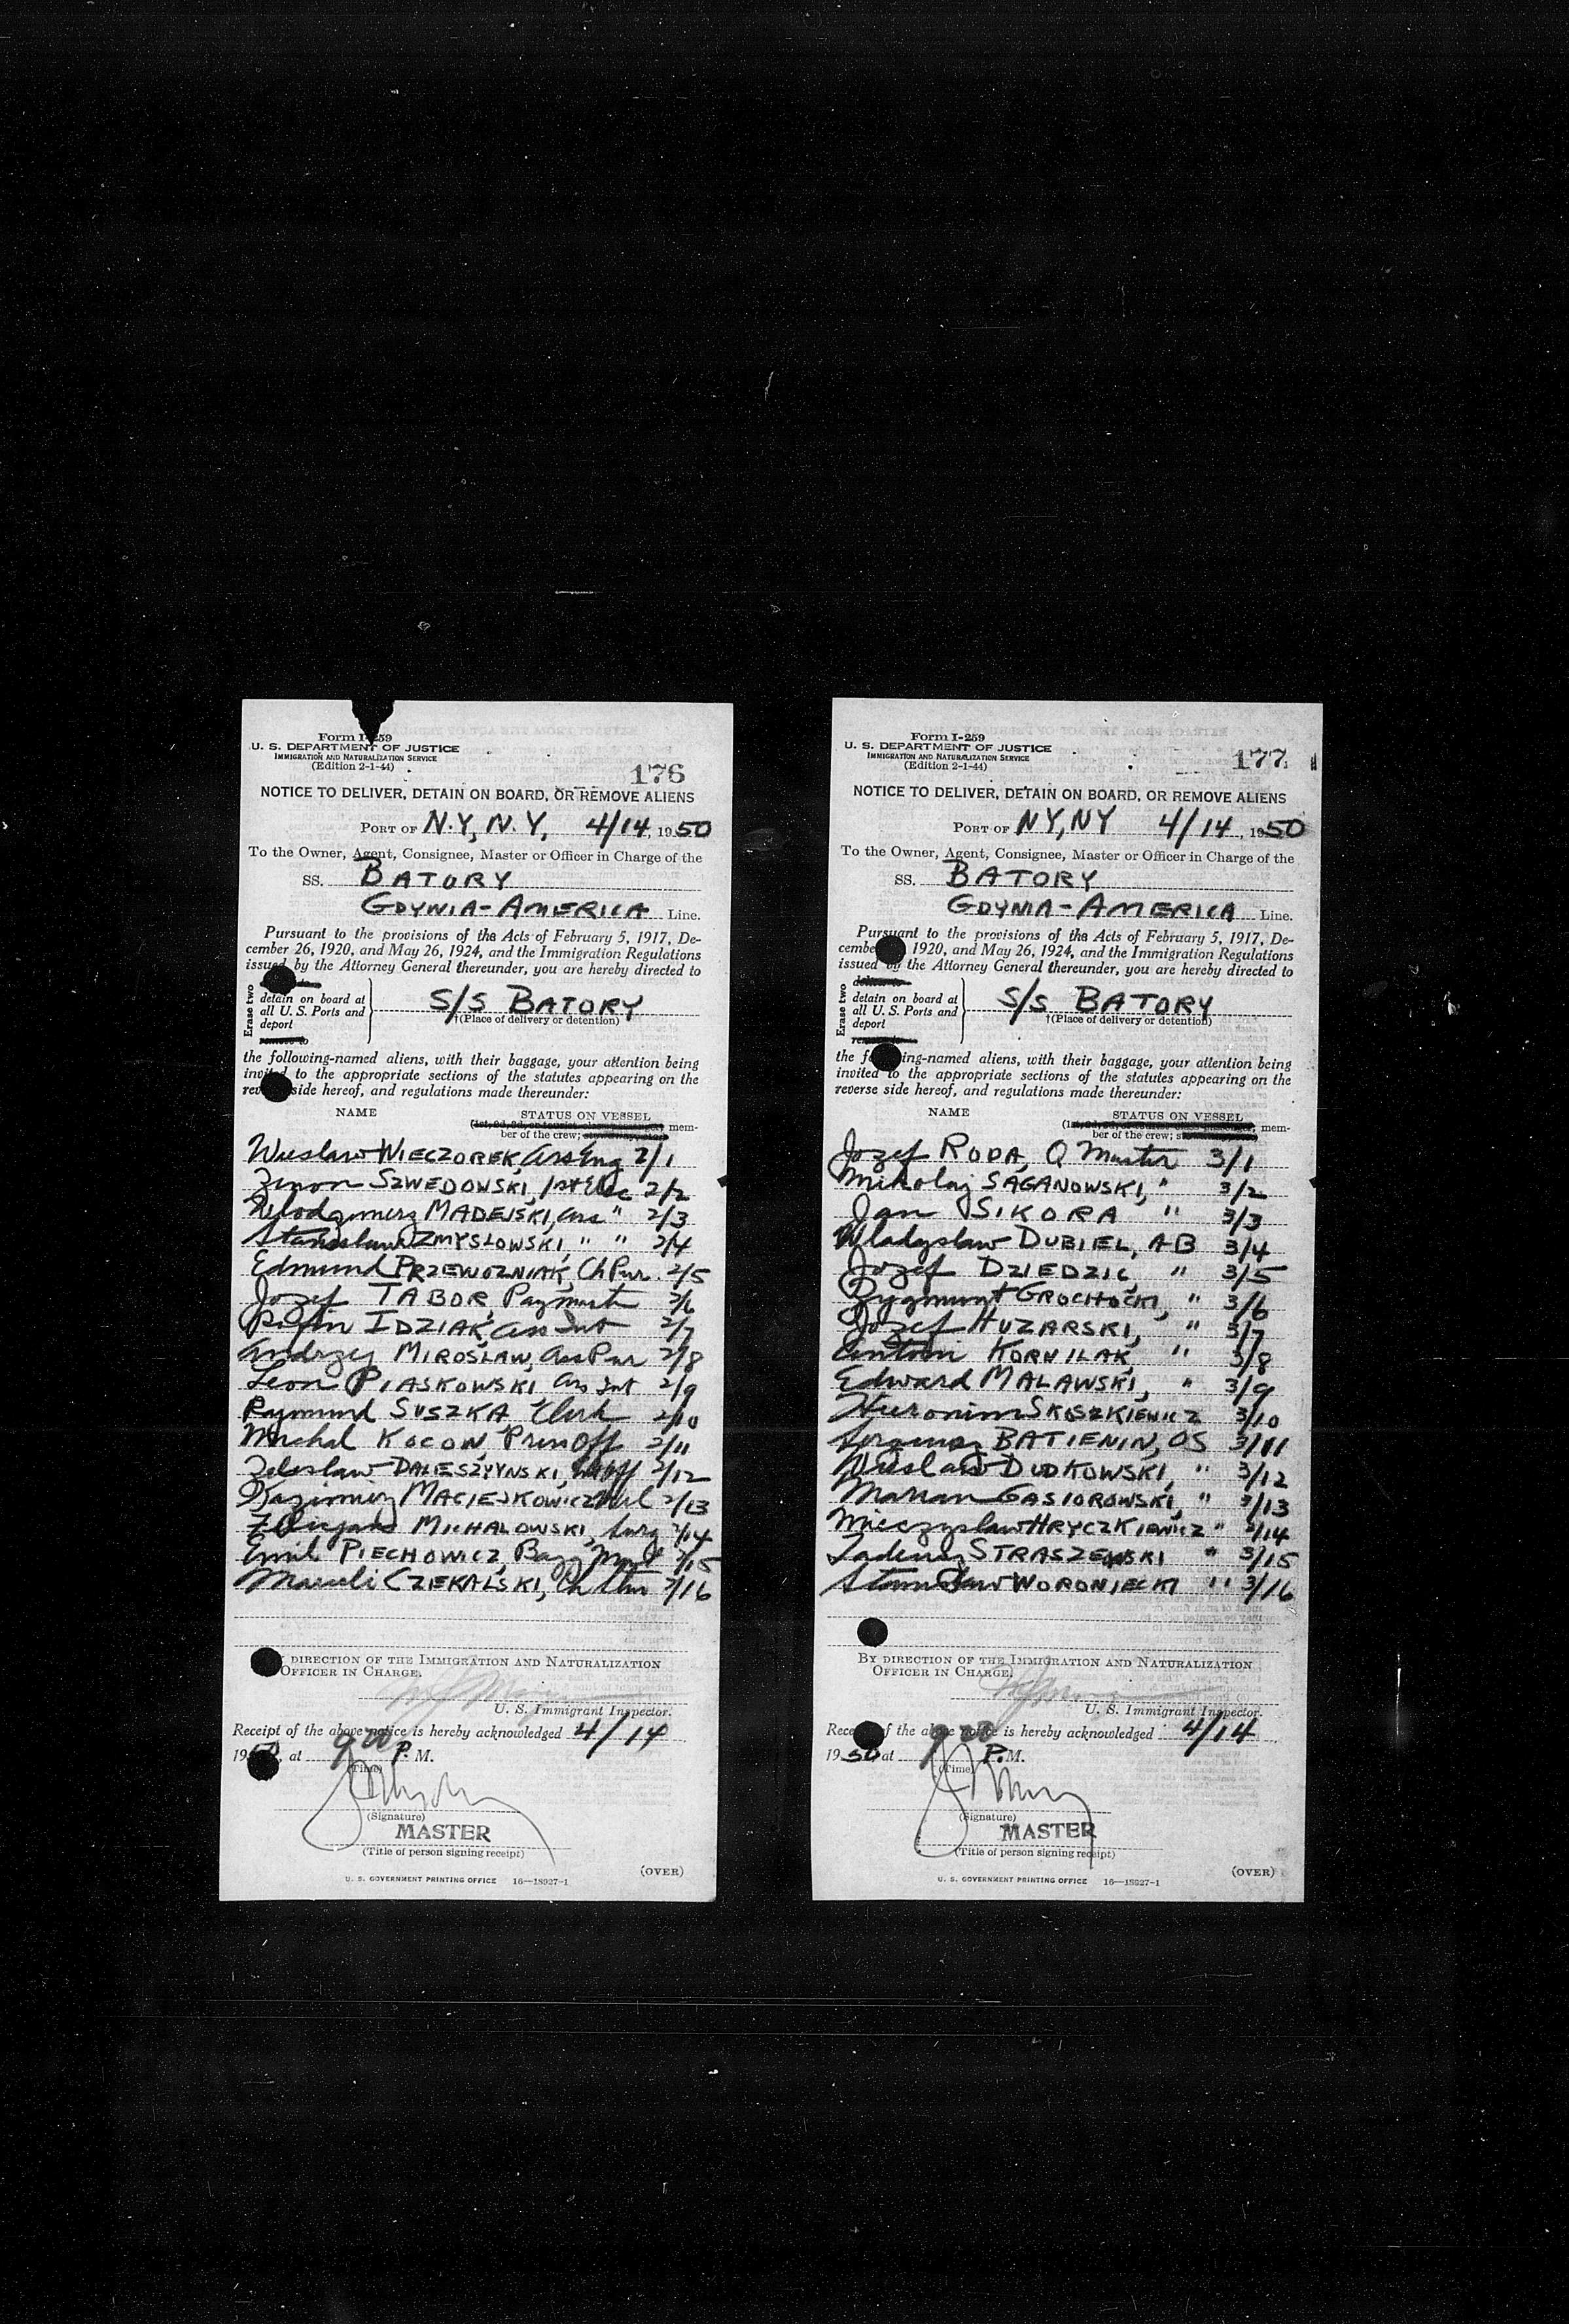 Form I-259
U. S. DEPARTMENT OF JUSTICE
IMMIGRATION AND NATURALIZATION SERVICE
(Edition 2-1-44)
176
NOTICE TO DELIVER, DETAIN ON BOARD, OR REMOVE ALIENS
PORT OF N.Y, N.Y, 4/14, 1950
To the Owner, Agent, Consignee, Master or Officer in Charge of the
SS. BATORY
GDYNIA-AMERICA Line.
Pursuant to the provisions of the Acts of February 5, 1917, De-
cember 26, 1920, and May 26, 1924, and the Immigration Regulations
issued by the Attorney General thereunder, you are hereby directed to
Erase two
detain on board at
all U. S. Ports and
deport
S/S BATORY
†(Place of delivery or detention)
the following-named aliens, with their baggage, your attention being
invited to the appropriate sections of the statutes appearing on the
reverse side hereof, and regulations made thereunder:
NAME STATUS ON VESSEL
mem-
ber of the crew;
Wieslaw WIECZOREK, Ass Eng 2/1
Zenon SZWEDOWSKI, 1st Elec 2/2
MADEJSKI, Ass " 2/3
Stanislaw ZMYSLOWSKI, " " 2/4
Edmund PRZEWOZNIAK, Ch Pur 2/5
Jozef TABOR, Paymast 2/6
IDZIAK, Ass Int 2/7
Andrzej MIROSLAW, Ass Pur 2/8
Leon PIASKOWSKI, Ass Int 2/9
Rajmund SUSZKA Clerk 2/10
Michal KOCON, Press Off 2/11
DALESZYYNSKI, 2/12
Kazimierz MACIEJKOWICZ 2/13
MICHALOWSKI, Surg 2/14
Emil PIECHOWICZ, Bagg Mast 2/15
CZEKALSKI, Ch Stw 2/16
DIRECTION OF THE IMMIGRATION AND NATURALIZATION
OFFICER IN CHARGE.
U. S. Immigrant Inspector.
Receipt of the above notice is hereby acknowledged 4/14
1950, at 9 00 P. M.
(Time)
(Signature)
MASTER
(Title of person signing receipt)
(OVER)
U. S. GOVERNMENT PRINTING OFFICE 16—18927-1
Form I-259
U. S. DEPARTMENT OF JUSTICE
IMMIGRATION AND NATURALIZATION SERVICE
(Edition 2-1-44)
177
NOTICE TO DELIVER, DETAIN ON BOARD, OR REMOVE ALIENS
PORT OF NY, NY 4/14, 1950
To the Owner, Agent, Consignee, Master or Officer in Charge of the
SS. BATORY
GDYNIA-AMERICA Line.
Pursuant to the provisions of the Acts of February 5, 1917, De-
cember 1920, and May 26, 1924, and the Immigration Regulations
issued by the Attorney General thereunder, you are hereby directed to
Erase two
detain on board at
all U. S. Ports and
deport
S/S BATORY
†(Place of delivery or detention)
the following-named aliens, with their baggage, your attention being
invited to the appropriate sections of the statutes appearing on the
reverse side hereof, and regulations made thereunder:
NAME STATUS ON VESSEL
mem-
ber of the crew;
Jozef RODA, Q Master 3/1
Mikolaj SAGANOWSKI, " 3/2
Jan SIKORA " 3/3
Wladyslaw DUBIEL, AB 3/4
Jozef DZIEDZIC, " 3/5
Zygmunt GROCHOCKI, " 3/6
Jozef HUZARSKI, " 3/7
Antoni KORNILAK, " 3/8
Edward MALAWSKI, " 3/9
Hieronim SKOSZKIEWICZ 3/10
BATIENIN, OS 3/11
Wieslaw DUDKOWSKI, " 3/12
Marian GASIOROWSKI, " 3/13
Mieczyslaw HRYCZKIEWICZ " 3/14
Tadeusz STRASZEWSKI " 3/15
Stanislaw WORONIECKI " 3/16
BY DIRECTION OF THE IMMIGRATION AND NATURALIZATION
OFFICER IN CHARGE.
U. S. Immigrant Inspector.
Receipt of the above notice is hereby acknowledged 4/14
1950 at 9 00 P. M.
(Time)
(Signature)
MASTER
(Title of person signing receipt)
(OVER)
U. S. GOVERNMENT PRINTING OFFICE 16—18927-1